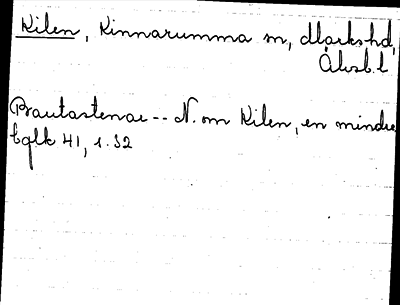 Kilen, Kinnarumma sn, Markshd,
Älvsb.l
Bautastenar -- N. om Kilen, en mindre
bglk 41, s. 32